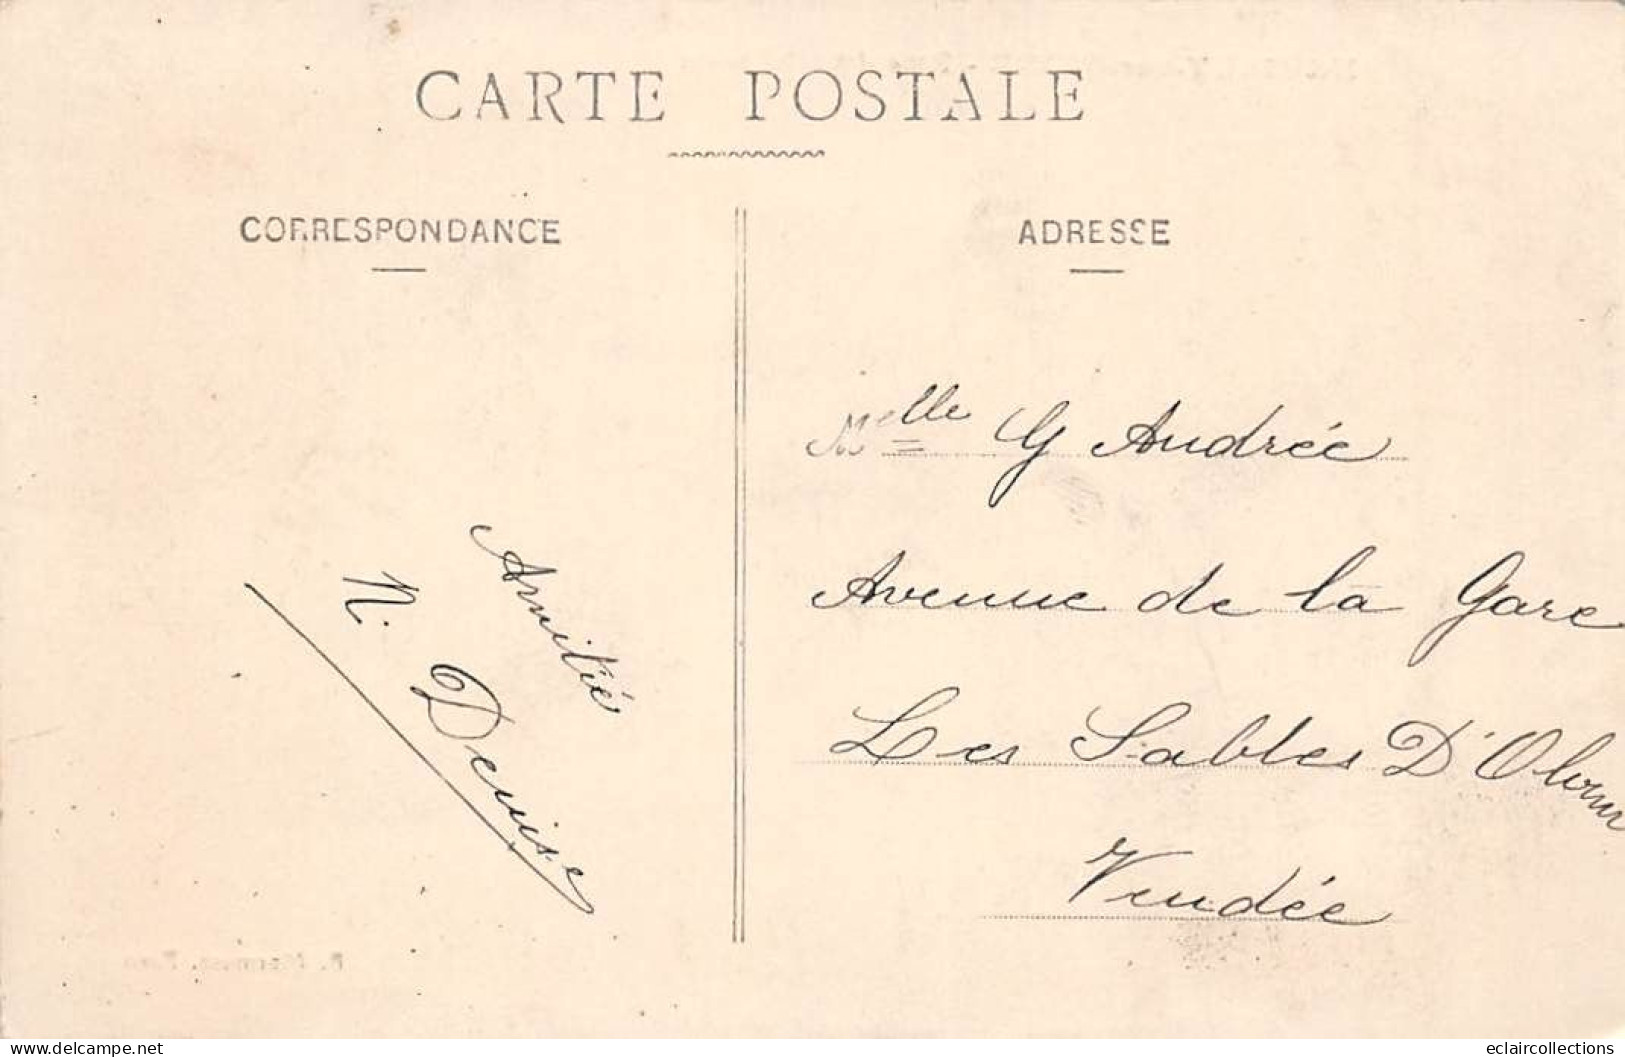 CARTE POSTALE
CORRESPONDANCE
ADRESSE
Melle G Andrée
Avenue de la Gare
Les Sables D'Olonne
Vendée
Amitié
N. Denise
www.delcampe.net
eclaircollections